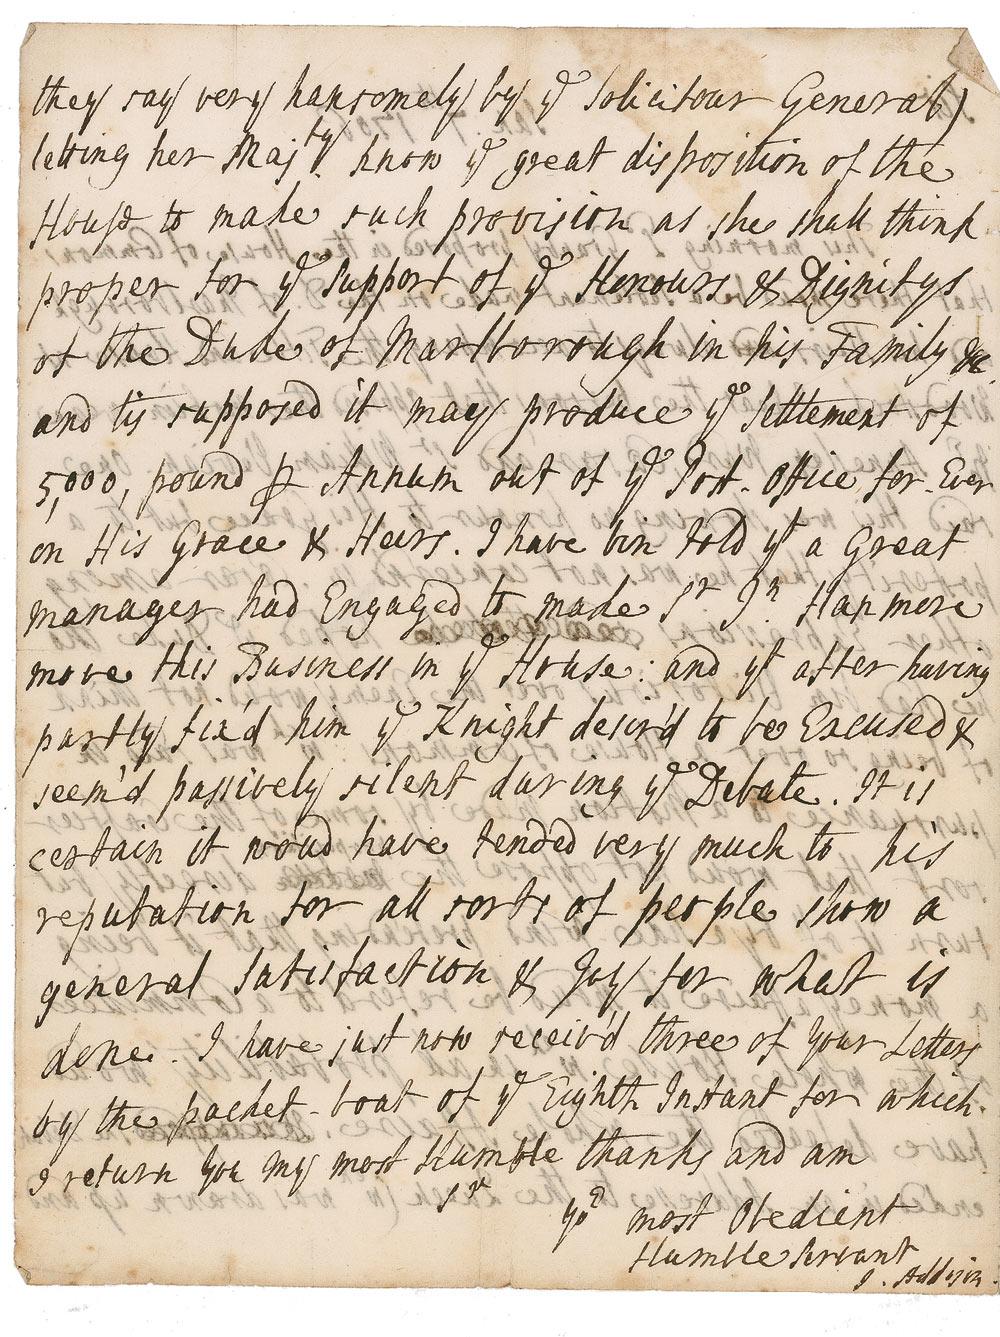 they say very hansomely by yᵉ Solicitour General)
letting her Majᵗʸ. know yᵉ great disposition of the
House to make such provision as she shall think
proper for yᵉ Support of yᵉ Honours & Dignitys
of the Duke of Marlborough in his Family &c
and tis supposed it may produce yᵉ Settlement of
5,000, pound ⅌ Annum out of yᵉ Post-Office for-Ever
on His Grace & Heirs. I have bin told yᵗ a Great
manager had Engaged to made Sʳ Jⁿ. Hanmore
move this Business in yᵉ House: and yᵗ after having
partly fix'd him yᵉ Knight desir'd to be Excused &
seem'd passively silent during yᵉ Debate. It is
certain it woud have tended very much to his
reputation for all sorts of people show a
general Satisfaction & Joy for what is
done. I have just now receiv'd three of Your Letters
by the packet-boat of yᵉ Eighth Instant for which
I return You my most Humble thanks and am
Sʳ
Yoʳ most Obedient
Humble Servant
J. Addison.